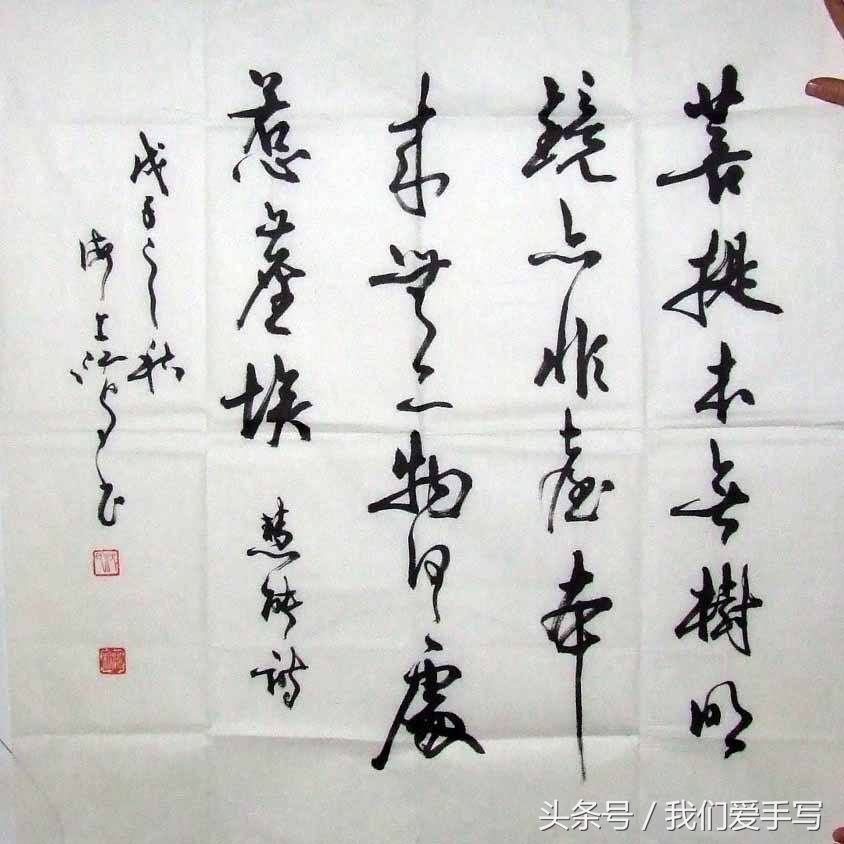 菩提本无樹明
鏡亦非臺本
来無一物何處
惹塵埃 慧能詩
戊子之秋
海上
书
头条号 / 我们爱手写